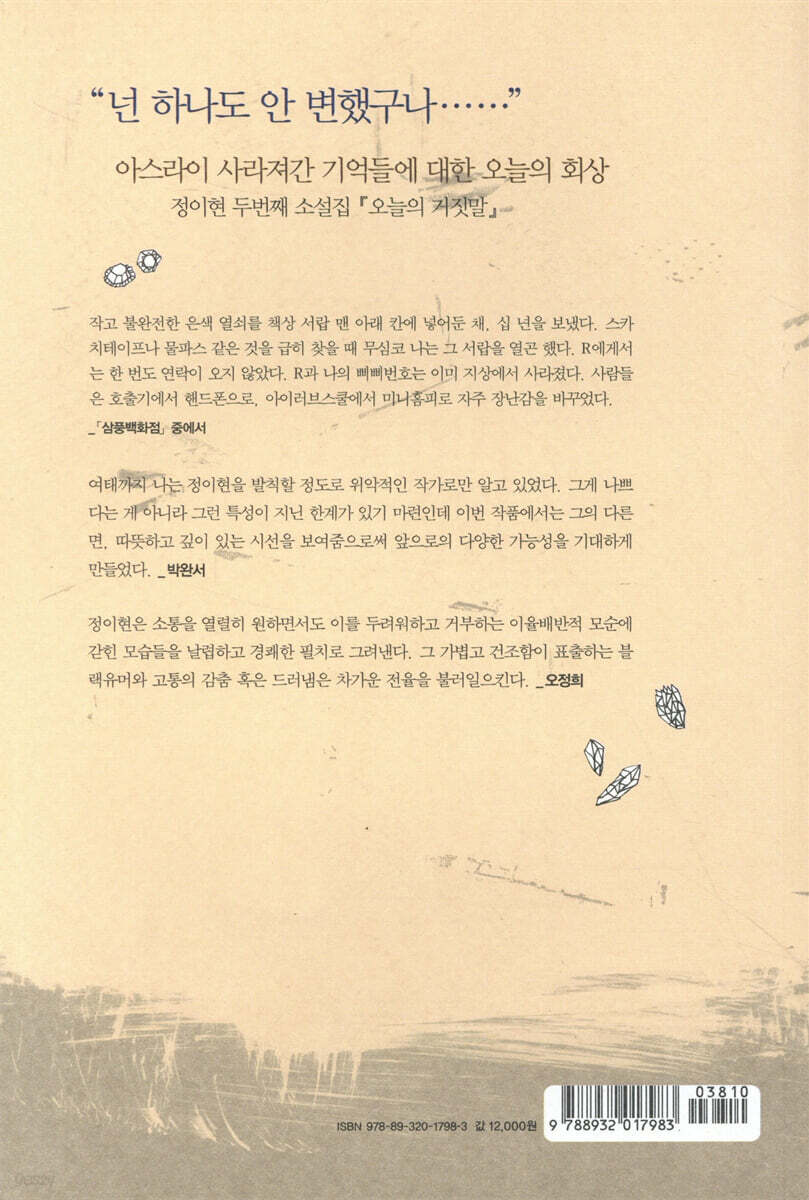 “넌 하나도 안 변했구나……”
아스라이 사라져간 기억들에 대한 오늘의 회상
정이현 두번째 소설집 『오늘의 거짓말』
작고 불완전한 은색 열쇠를 책상 서랍 맨 아래 칸에 넣어둔 채, 십 년을 보냈다. 스카
치테이프나 물파스 같은 것을 급히 찾을 때 무심코 나는 그 서랍을 열곤 했다. R에게서
는 한 번도 연락이 오지 않았다. R과 나의 삐삐번호는 이미 지상에서 사라졌다. 사람들
은 호출기에서 핸드폰으로, 아이러브스쿨에서 미니홈피로 자주 장난감을 바꾸었다.
_「삼풍백화점」 중에서
여태까지 나는 정이현을 발칙할 정도로 위악적인 작가로만 알고 있었다. 그게 나쁘
다는 게 아니라 그런 특성이 지닌 한계가 있기 마련인데 이번 작품에서는 그의 다른
면, 따뜻하고 깊이 있는 시선을 보여줌으로써 앞으로의 다양한 가능성을 기대하게
만들었다. _박완서
정이현은 소통을 열렬히 원하면서도 이를 두려워하고 거부하는 이율배반적 모순에
갇힌 모습들을 날렵하고 경쾌한 필치로 그려낸다. 그 가볍고 건조함이 표출하는 블
랙유머와 고통의 감춤 혹은 드러냄은 차가운 전율을 불러일으킨다. _오정희
03810
ISBN 978-89-320-1798-3 값 12,000원
9 788932 017983
yes24